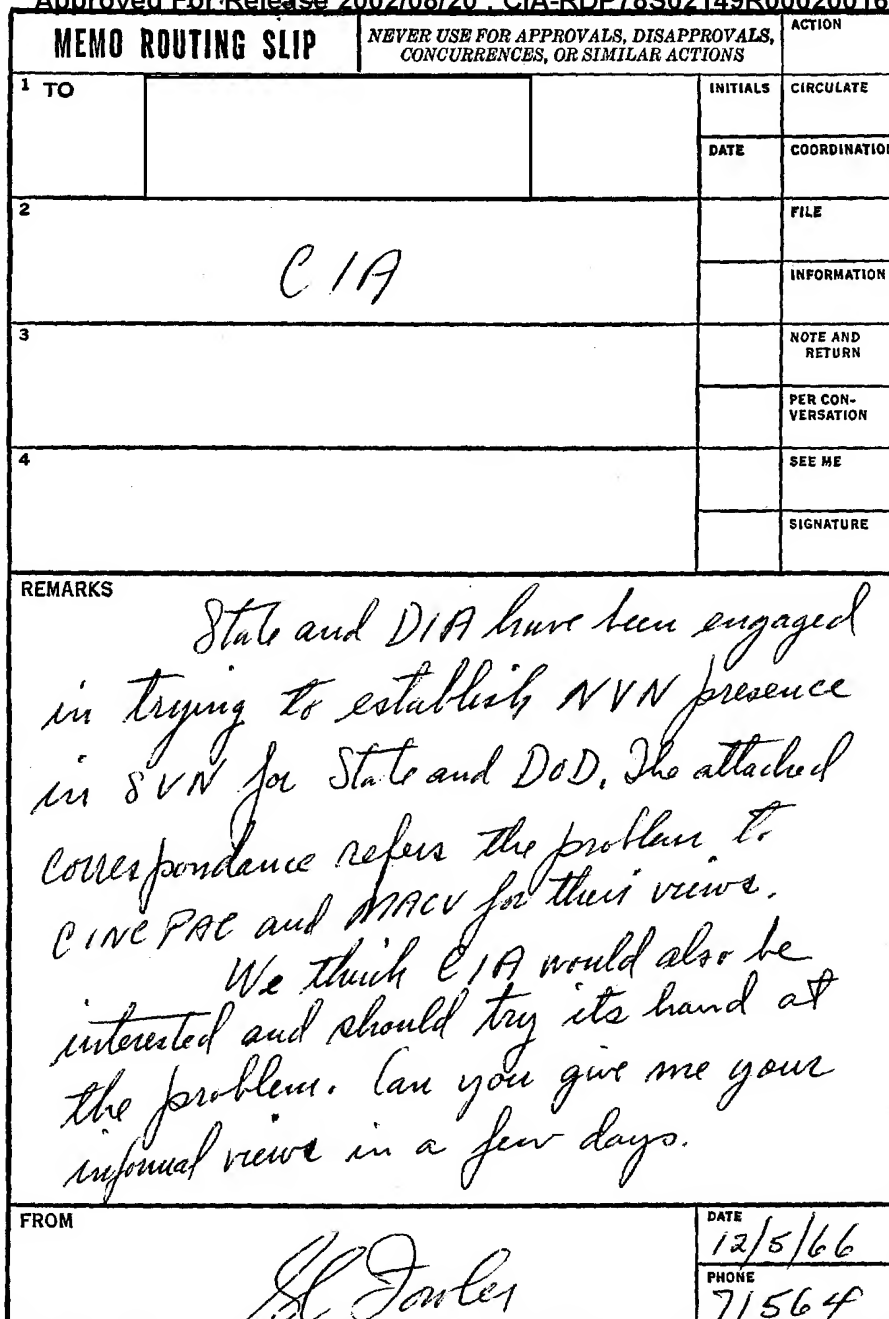 Approved For Release 2002/08/20 : CIA-RDP78S02149R00020016
MEMO ROUTING SLIP
NEVER USE FOR APPROVALS, DISAPPROVALS,
CONCURRENCES, OR SIMILAR ACTIONS
ACTION
1 TO
INITIALS
CIRCULATE
DATE
COORDINATION
2
CIA
FILE
INFORMATION
3
NOTE AND
RETURN
PER CON-
VERSATION
4
SEE ME
SIGNATURE
REMARKS
State and DIA have been engaged
in trying to establish NVN presence
in SVN for State and DoD. The attached
correspondance refers the problem to
CINCPAC and MACV for their views.
We think CIA would also be
interested and should try its hand at
the problem. Can you give me your
informal views in a few days.
FROM
Fowler
DATE
12/5/66
PHONE
71564